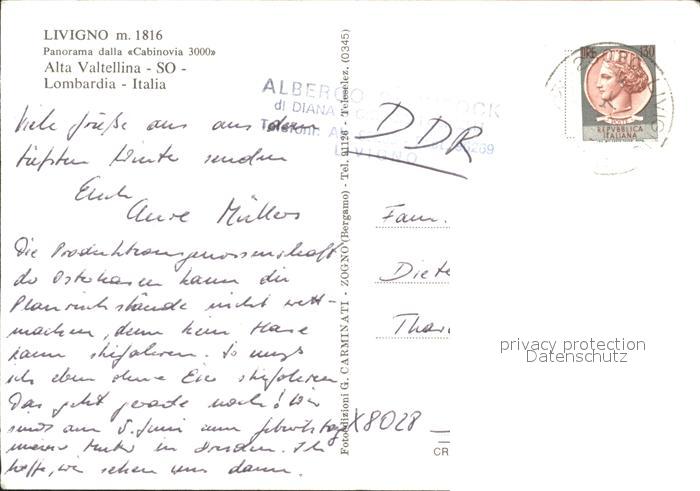 LIVIGNO m. 1816
Panorama dalla «Cabinovia 3000»
Alta Valtellina - SO -
Lombardia - Italia
Fotoedizioni G. CARMINATI - ZOGNO (Bergamo) - Tel. 91126 - Teleselez. (0345)
ALBERGO
di DIANA
LIVIGNO
130
POSTE
REPVBBLICA
ITALIANA
Viele Grüße aus aus dem
tiefsten Winter senden
Euch
Müllers
Die Produktionsgenossenschaft
der Osterhasen kann die
Planrückstände nicht wett-
machen, denn kein Hase
kann skifahren. So muß
ich eben ohne Eier skifahren.
Das geht gerade noch! Wir
sind am 5. Juni zum Geburtstag
meiner Mutter in Dresden. Ich
hoffe, wir sehen uns dann.
DDR
Fam.
Diete
Thar
X8028
CR
privacy protection
Datenschutz